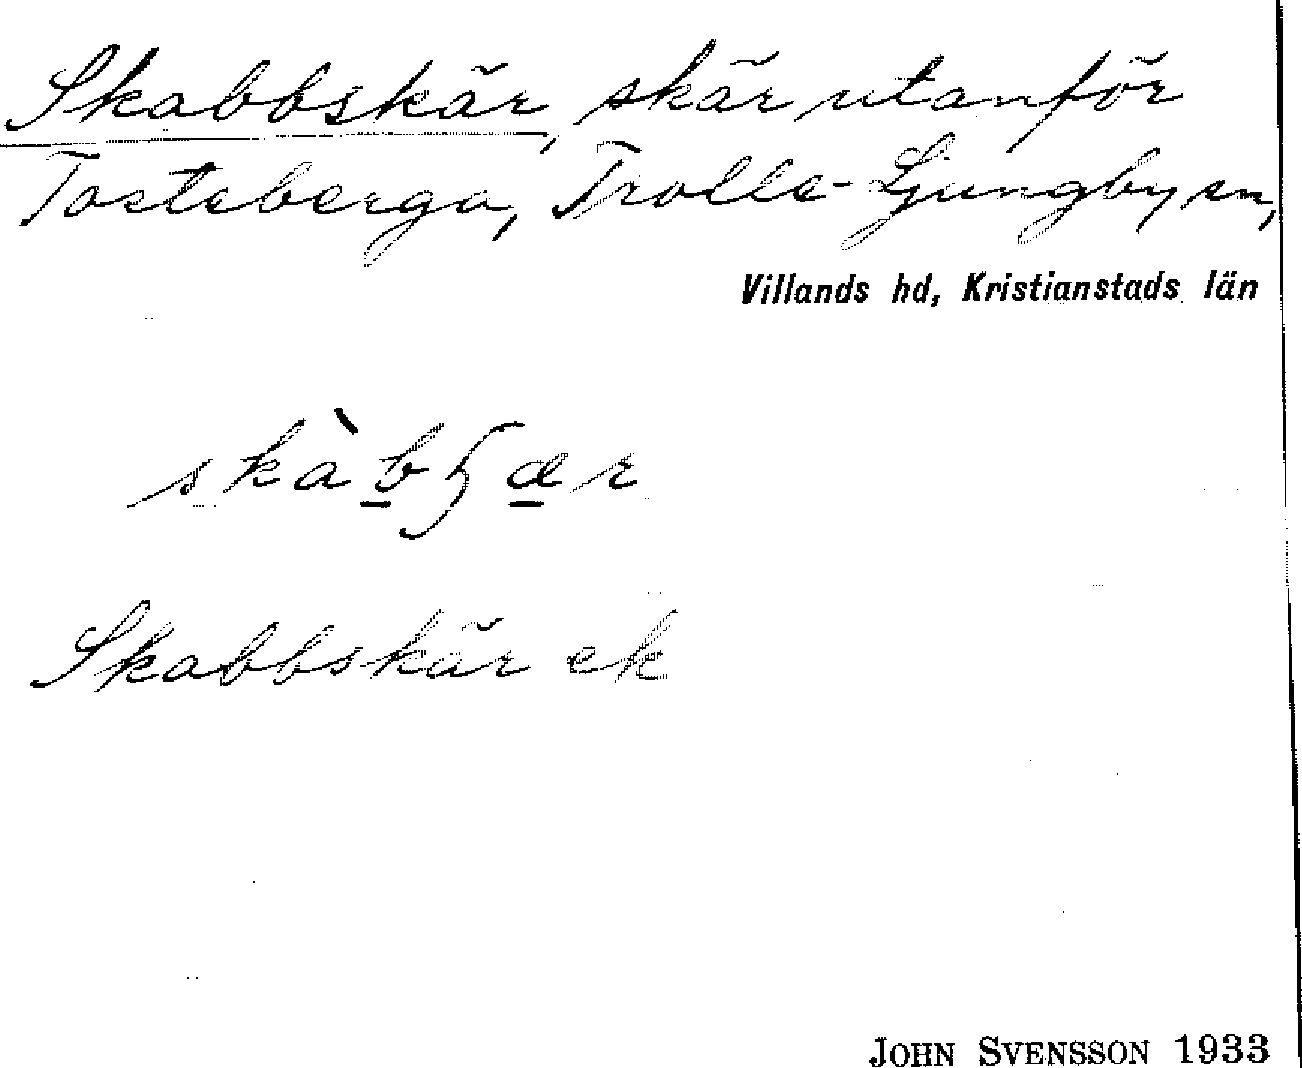 Skabbskär, skär utanför
Tosteberga, Trolle-Ljungby sn,
Villands hd, Kristianstads län
skàbʒær
Skabbskär ek
JOHN SVENSSON 1933